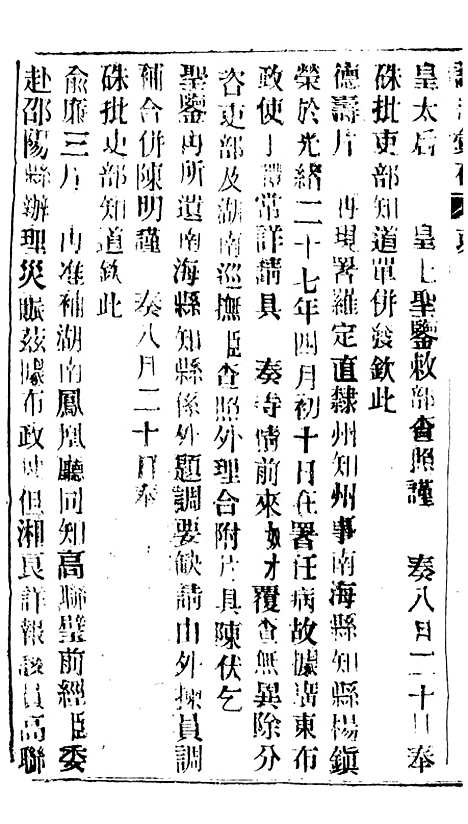 皇太后　皇上聖鑒敕部查照謹　奏八月二十日奉
硃批吏部知道單併發欽此
德壽片　再現署羅定直隸州知州事南海縣知縣楊鎮
榮於光緒二十七年四月初十日在署任病故據廣東布
政使丁體常詳請具　奏等情前來奴才覆查無異除分
咨吏部及湖南巡撫臣查照外理合附片具陳伏乞
聖鑒再所遺南海縣知縣係外題調要缺請由外揀員調
補合併陳明謹　奏八月二十日奉
硃批吏部知道欽此
俞廉三片　再准補湖南鳳凰廳同知高聯璧前經臣委
赴邵陽縣辦理災賑茲據布政使但湘良詳報該員高聯